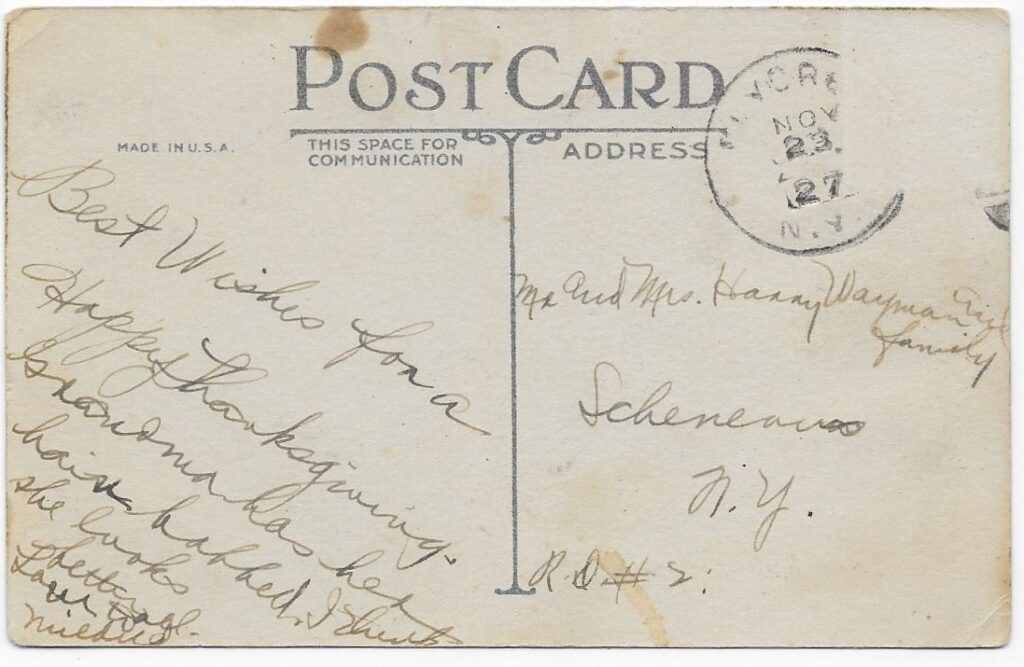 POST CARD
MADE IN U.S.A.
THIS SPACE FOR
COMMUNICATION
ADDRESS
NOV
23
27
N.Y.
Best Wishes for a
Happy Thanksgiving.
Grandma has her
hair bobbed. I think
she looks
Mildred
Mr and Mrs. Harry Wayman and
family
Schenevus
N.Y.
R.D. # 2.